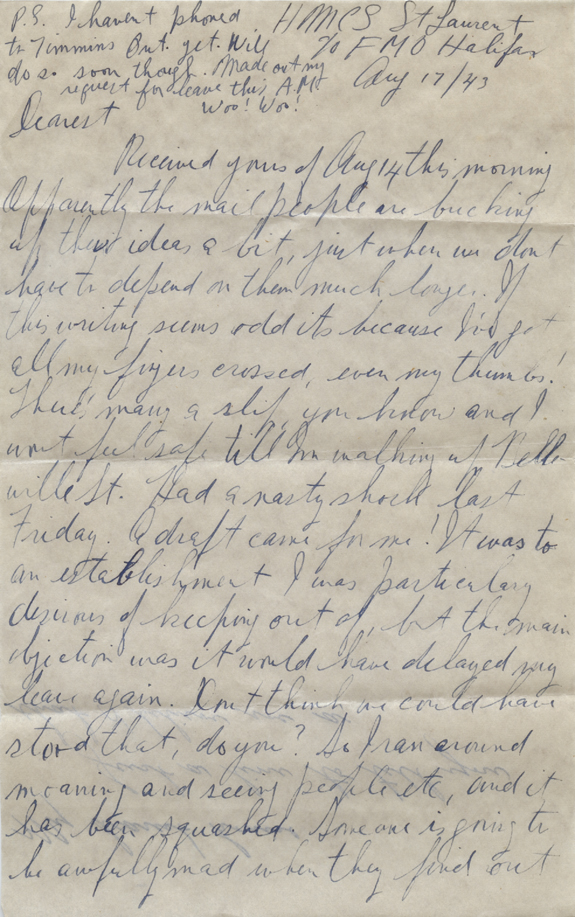 P.S. I haven't phoned
to Timmins Ont. yet. Will
do so soon though. Made out my
request for leave this A.M.
Woo! Woo!
HMCS St Laurent
℅ FMO Halifax
Aug 17/43
Dearest
Received yours of Aug 14 this morning
Apparently the mail people are bucking
up their ideas a bit, just when we don't
have to depend on them much longer. If
this writing seems odd its because I've got
all my fingers crossed, even my thumbs!
There's many a slip, you know and I
won't feel safe till I'm walking up Belle
ville St. Had a nasty shock last
Friday. A draft came for me! It was to
an establishment I was particulary
desirous of keeping out of, but the main
objection was it would have delayed my
leave again. Don't think we could have
stood that, do you? So I ran around
moaning and seeing people etc, and it
has been squashed. Someone is going to
be awfully mad when they find out